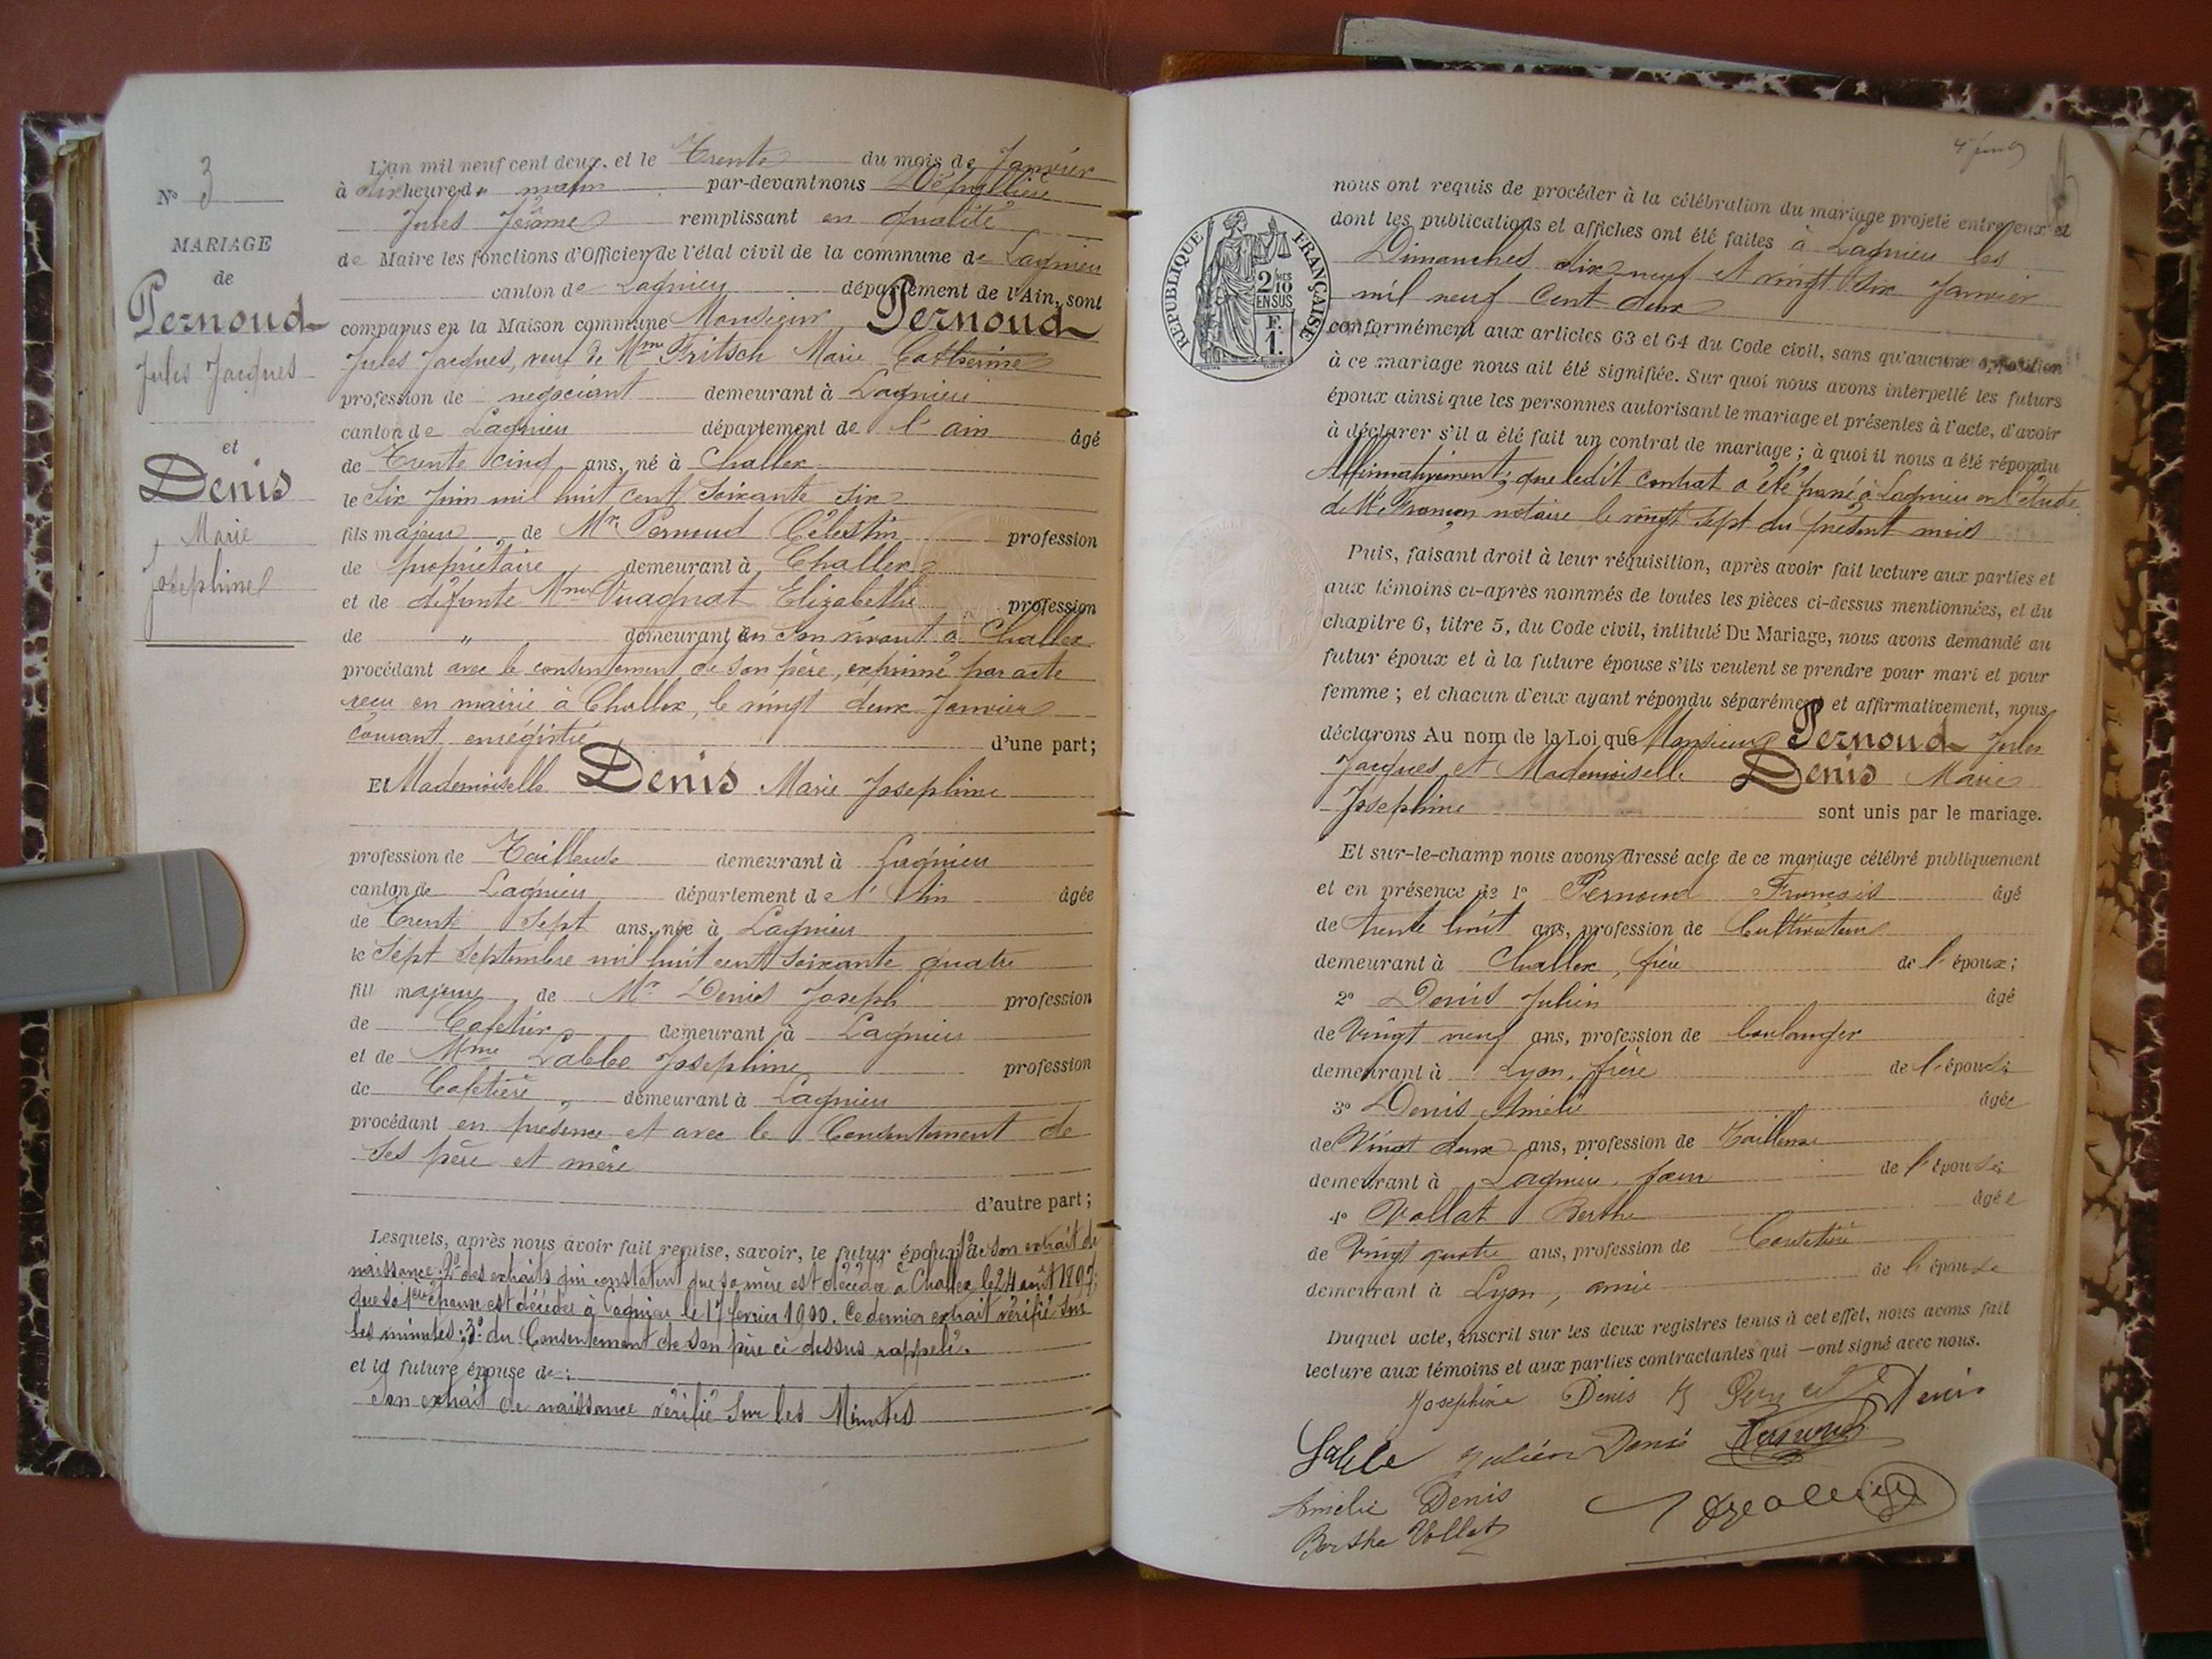 N° 3
MARIAGE
de
Pernoud
Jules Jacques
et
Denis
Marie
Joséphine
L'an mil neuf cent deux, et le Trente du mois de Janvier
à dix heure du matin par-devant nous
Jules Jérôme remplissant en qualité
de Maire les fonctions d'Officier de l'état civil de la commune de Lagnieu
canton de Lagnieu département de l'Ain, sont
comparus en la Maison commune Monsieur Pernoud
Jules Jacques, veuf de Mme Fritsch Marie Catherine
profession de négociant demeurant à Lagnieu
canton de Lagnieu département de l'ain âgé
de Trente cinq ans, né à Challex
le Six Juin mil huit cent soixante six
fils majeur de Mr Pernoud Célestin profession
de propriétaire demeurant à Challex
et de défunte Mme Vuagnat Elizabeth profession
de " demeurant en son vivant à Challex
procédant avec le consentement de son père, exprimé par acte
reçu en mairie à Challex, le vingt deux Janvier
courant enregistré d'une part;
Et Mademoiselle Denis Marie Joséphine
profession de Tailleuse demeurant à Lagnieu
canton de Lagnieu département de l'Ain âgée
de Trente Sept ans, née à Lagnieu
le Sept Septembre mil huit cent soixante quatre
fill majeure de Mr Denis Joseph profession
de Cafetier demeurant à Lagnieu
et de Mme Labbe Joséphine profession
de Cafetière demeurant à Lagnieu
procédant en présence et avec le Consentement de
ses père et mère
d'autre part;
Lesquels, après nous avoir fait remise, savoir, le futur époux 1° de son extrait de
naissance; 2° des extraits qui constatent que sa mère est décédée à Challex le 24 août 1897,
que sa 1ère épouse est décédée à Lagnieu le 17 février 1900. Ce dernier extrait vérifié sur
les minutes; 3° du Consentement de son père ci-dessus rappelé.
et la future épouse de :
son extrait de naissance vérifié sur les Minutes
RÉPUBLIQUE FRANÇAISE
2/10
EN SUS
F.
1.
nous ont requis de procéder à la célébration du mariage projeté entre eux et
dont les publications et affiches ont été faites à Lagnieu les
Dimanches dix neuf et vingt six Janvier
mil neuf cent deux
conformément aux articles 63 et 64 du Code civil, sans qu'aucune opposition
à ce mariage nous ait été signifiée. Sur quoi nous avons interpellé les futurs
époux ainsi que les personnes autorisant le mariage et présentes à l'acte, d'avoir
à déclarer s'il a été fait un contrat de mariage; à quoi il nous a été répondu
Affirmativement; que ledit contrat a été passé à Lagnieu en l'étude
de Me notaire le vingt sept du présent mois
Puis, faisant droit à leur réquisition, après avoir fait lecture aux parties et
aux témoins ci-après nommés de toutes les pièces ci-dessus mentionnées, et du
chapitre 6, titre 5, du Code civil, intitulé Du Mariage, nous avons demandé au
futur époux et à la future épouse s'ils veulent se prendre pour mari et pour
femme; et chacun d'eux ayant répondu séparément et affirmativement, nous
déclarons Au nom de la Loi que Monsieur Pernoud Jules
Jacques et Mademoiselle Denis Marie
Joséphine sont unis par le mariage.
Et sur-le-champ nous avons dressé acte de ce mariage célébré publiquement
et en présence de 1° Pernoud François âgé
de trente huit ans, profession de Cultivateur
demeurant à Challex, frère de l'époux;
2° Denis Julien âgé
de Vingt neuf ans, profession de boulanger
demeurant à Lyon, frère de l'épouse
3° Denis Amélie âgée
de Vingt deux ans, profession de Tailleuse
demeurant à Lagnieu, sœur de l'épouse
4° Vollat Berthe âgée
de Vingt quatre ans, profession de
demeurant à Lyon, amie de l'épouse
Duquel acte, inscrit sur les deux registres tenus à cet effet, nous avons fait
lecture aux témoins et aux parties contractantes qui — ont signé avec nous.
Joséphine Denis Denis
Labbe Julien Denis Pernoud
Amélie Denis
Berthe Vollat